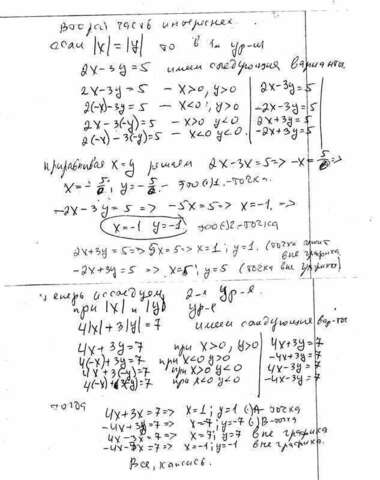 Второй часть интереснее.
если |x| = |y| то в 1м ур-ии
2x-3y=5 имеем следующие варианты
2x-3y=5 - x>0, y>0 | 2x-3y=5
2(-x)-3y=5 - x<0; y>0 | -2x-3y=5
2x-3(-y)=5 - x>0 y<0 | 2x+3y=5
2(-x)-3(-y)=5 - x<0 y<0. | -2x+3y=5
приравнивая x=y решаем 2x-3x=5=> -x=5 =>
-2x-3y=5 => -5x=5=> x=-1. =>
x=-1 y=-1 это(·)2-точка
2x+3y=5=>5x=5=> x=1; y=1. (точка лежит
вне графика
-2x+3y=5 => x=5; y=5 (точка вне графика)
Теперь исследуем 2-е ур-е.
при |x| и |y| ур-е
4|x|+3|y|=7 имеем следующие вар-ты
4x+3y=7 при x>0, y>0 | 4x+3y=7
4(-x)+3y=7 при x<0 y>0 | -4x+3y=7
4x+3(-y)=7 при x>0 y<0 | 4x-3y=7
4(-x)+3(-y)=7 при x<0 y<0 | -4x-3y=7
тогда
4x+3x=7=> x=1; y=1 (·)A точка
-4x+3y=7=> x=-7; y=-7 (·)B-точка
4x-3x=7=> x=7; y=7 вне графика
-4x-3x=7=> x=-1; y=-1 вне графика.
Все, кажись.